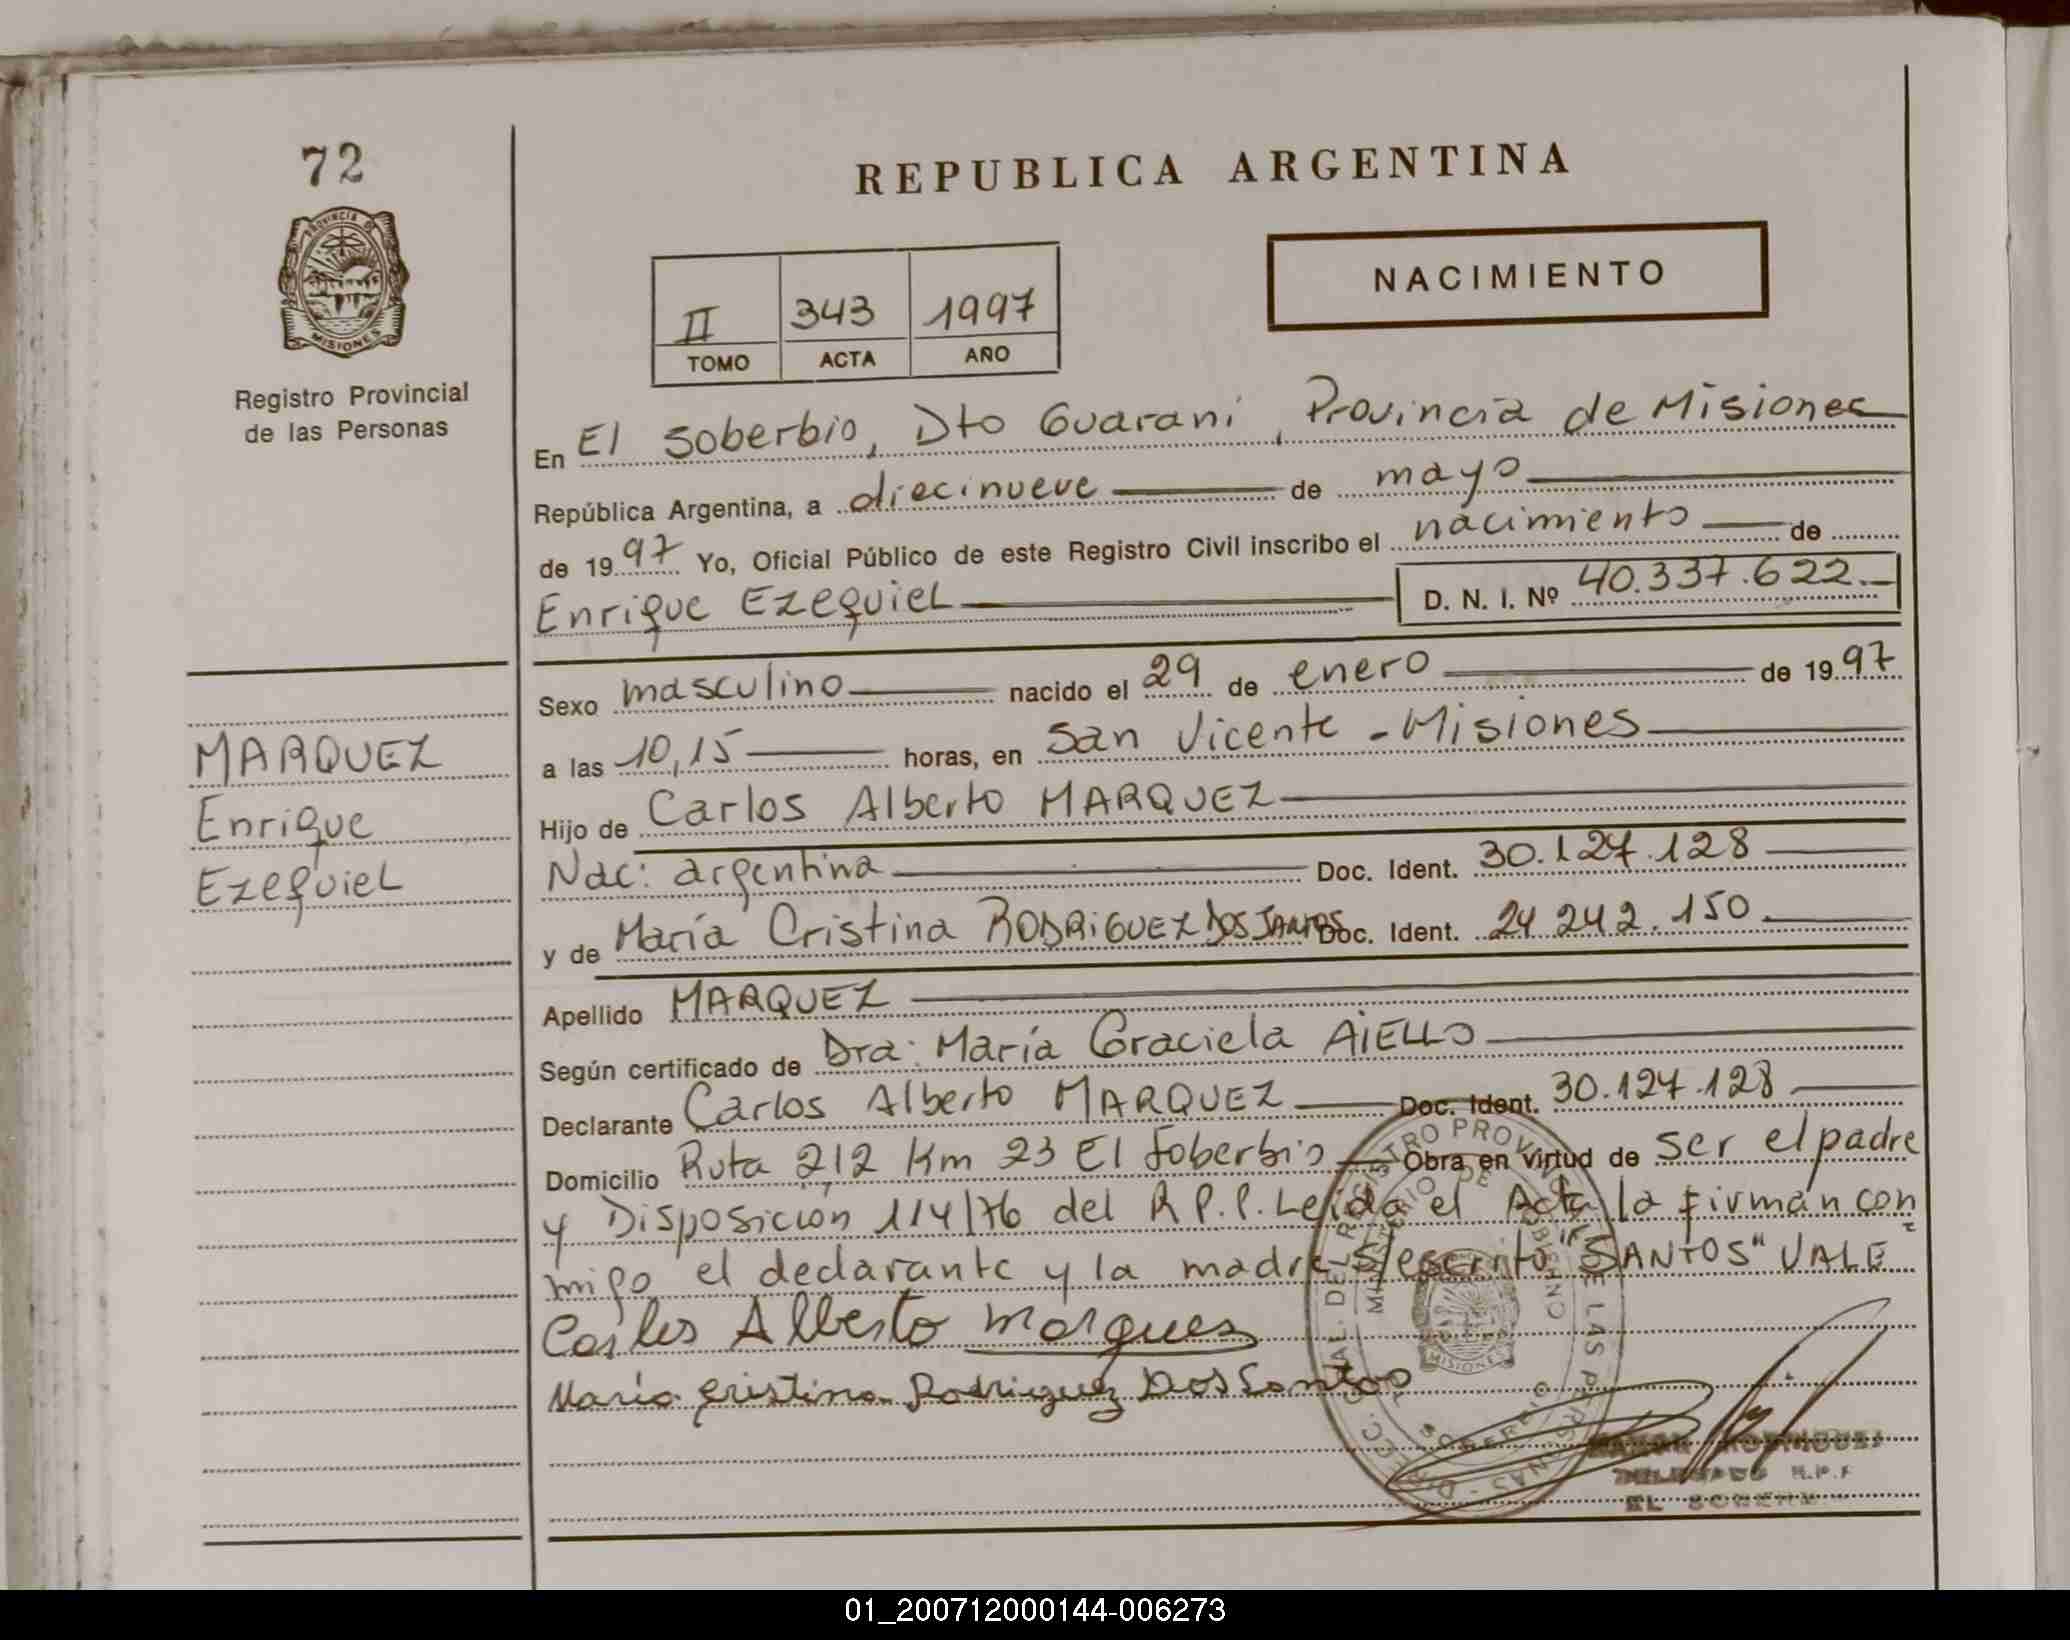 72
REPUBLICA ARGENTINA
NACIMIENTO
II 343 1997
TOMO ACTA AÑO
MISIONES
Registro Provincial
de las Personas
En El Soberbio, Dto Guarani, Provincia de Misiones
República Argentina, a diecinueve de mayo
de 1997 Yo, Oficial Público de este Registro Civil inscribo el nacimiento de
Enrique Ezequiel D. N. I. Nº 40.337.622.-
Sexo masculino nacido el 29 de enero de 1997
a las 10,15 horas, en San Vicente - Misiones
MARQUEZ
Enrique
Ezequiel
Hijo de Carlos Alberto MARQUEZ
Nac: argentina Doc. Ident. 30.127.128
y de María Cristina RODRIGUEZ DOS SANTOS Doc. Ident. 24 242.150
Apellido MARQUEZ
Según certificado de Dra: María Graciela AIELLO
Declarante Carlos Alberto MARQUEZ Doc. Ident. 30.127.128
Domicilio Ruta 212 Km 23 El Soberbio Obra en virtud de ser el padre
y Disposicion 114/76 del R.P.P. Leida el Acta la firman con
migo el declarante y la madre S/escrito "SANTOS" VALE
Carlos Alberto Marques
Maria Cristina Rodriguez Dos Santos
DELEGADO
EL SOBERB
01_200712000144-006273